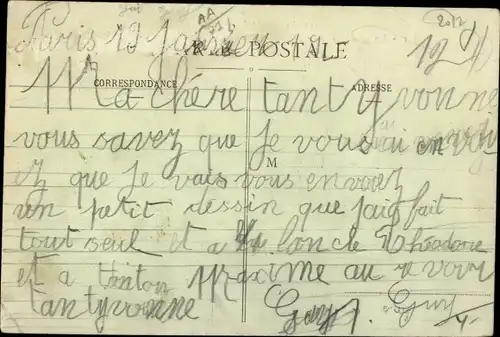 2012
Paris 13 Janvier
POSTALE
CORRESPONDANCE
ADRESSE
Ma chère tantyvonne
vous savez que je vous ai
M
ez que je vais vous envoez
un petit dessin que jais fait
tout seul et a loncle Theodore
et a tonton Maxime au revoir
tantyvonne Guy